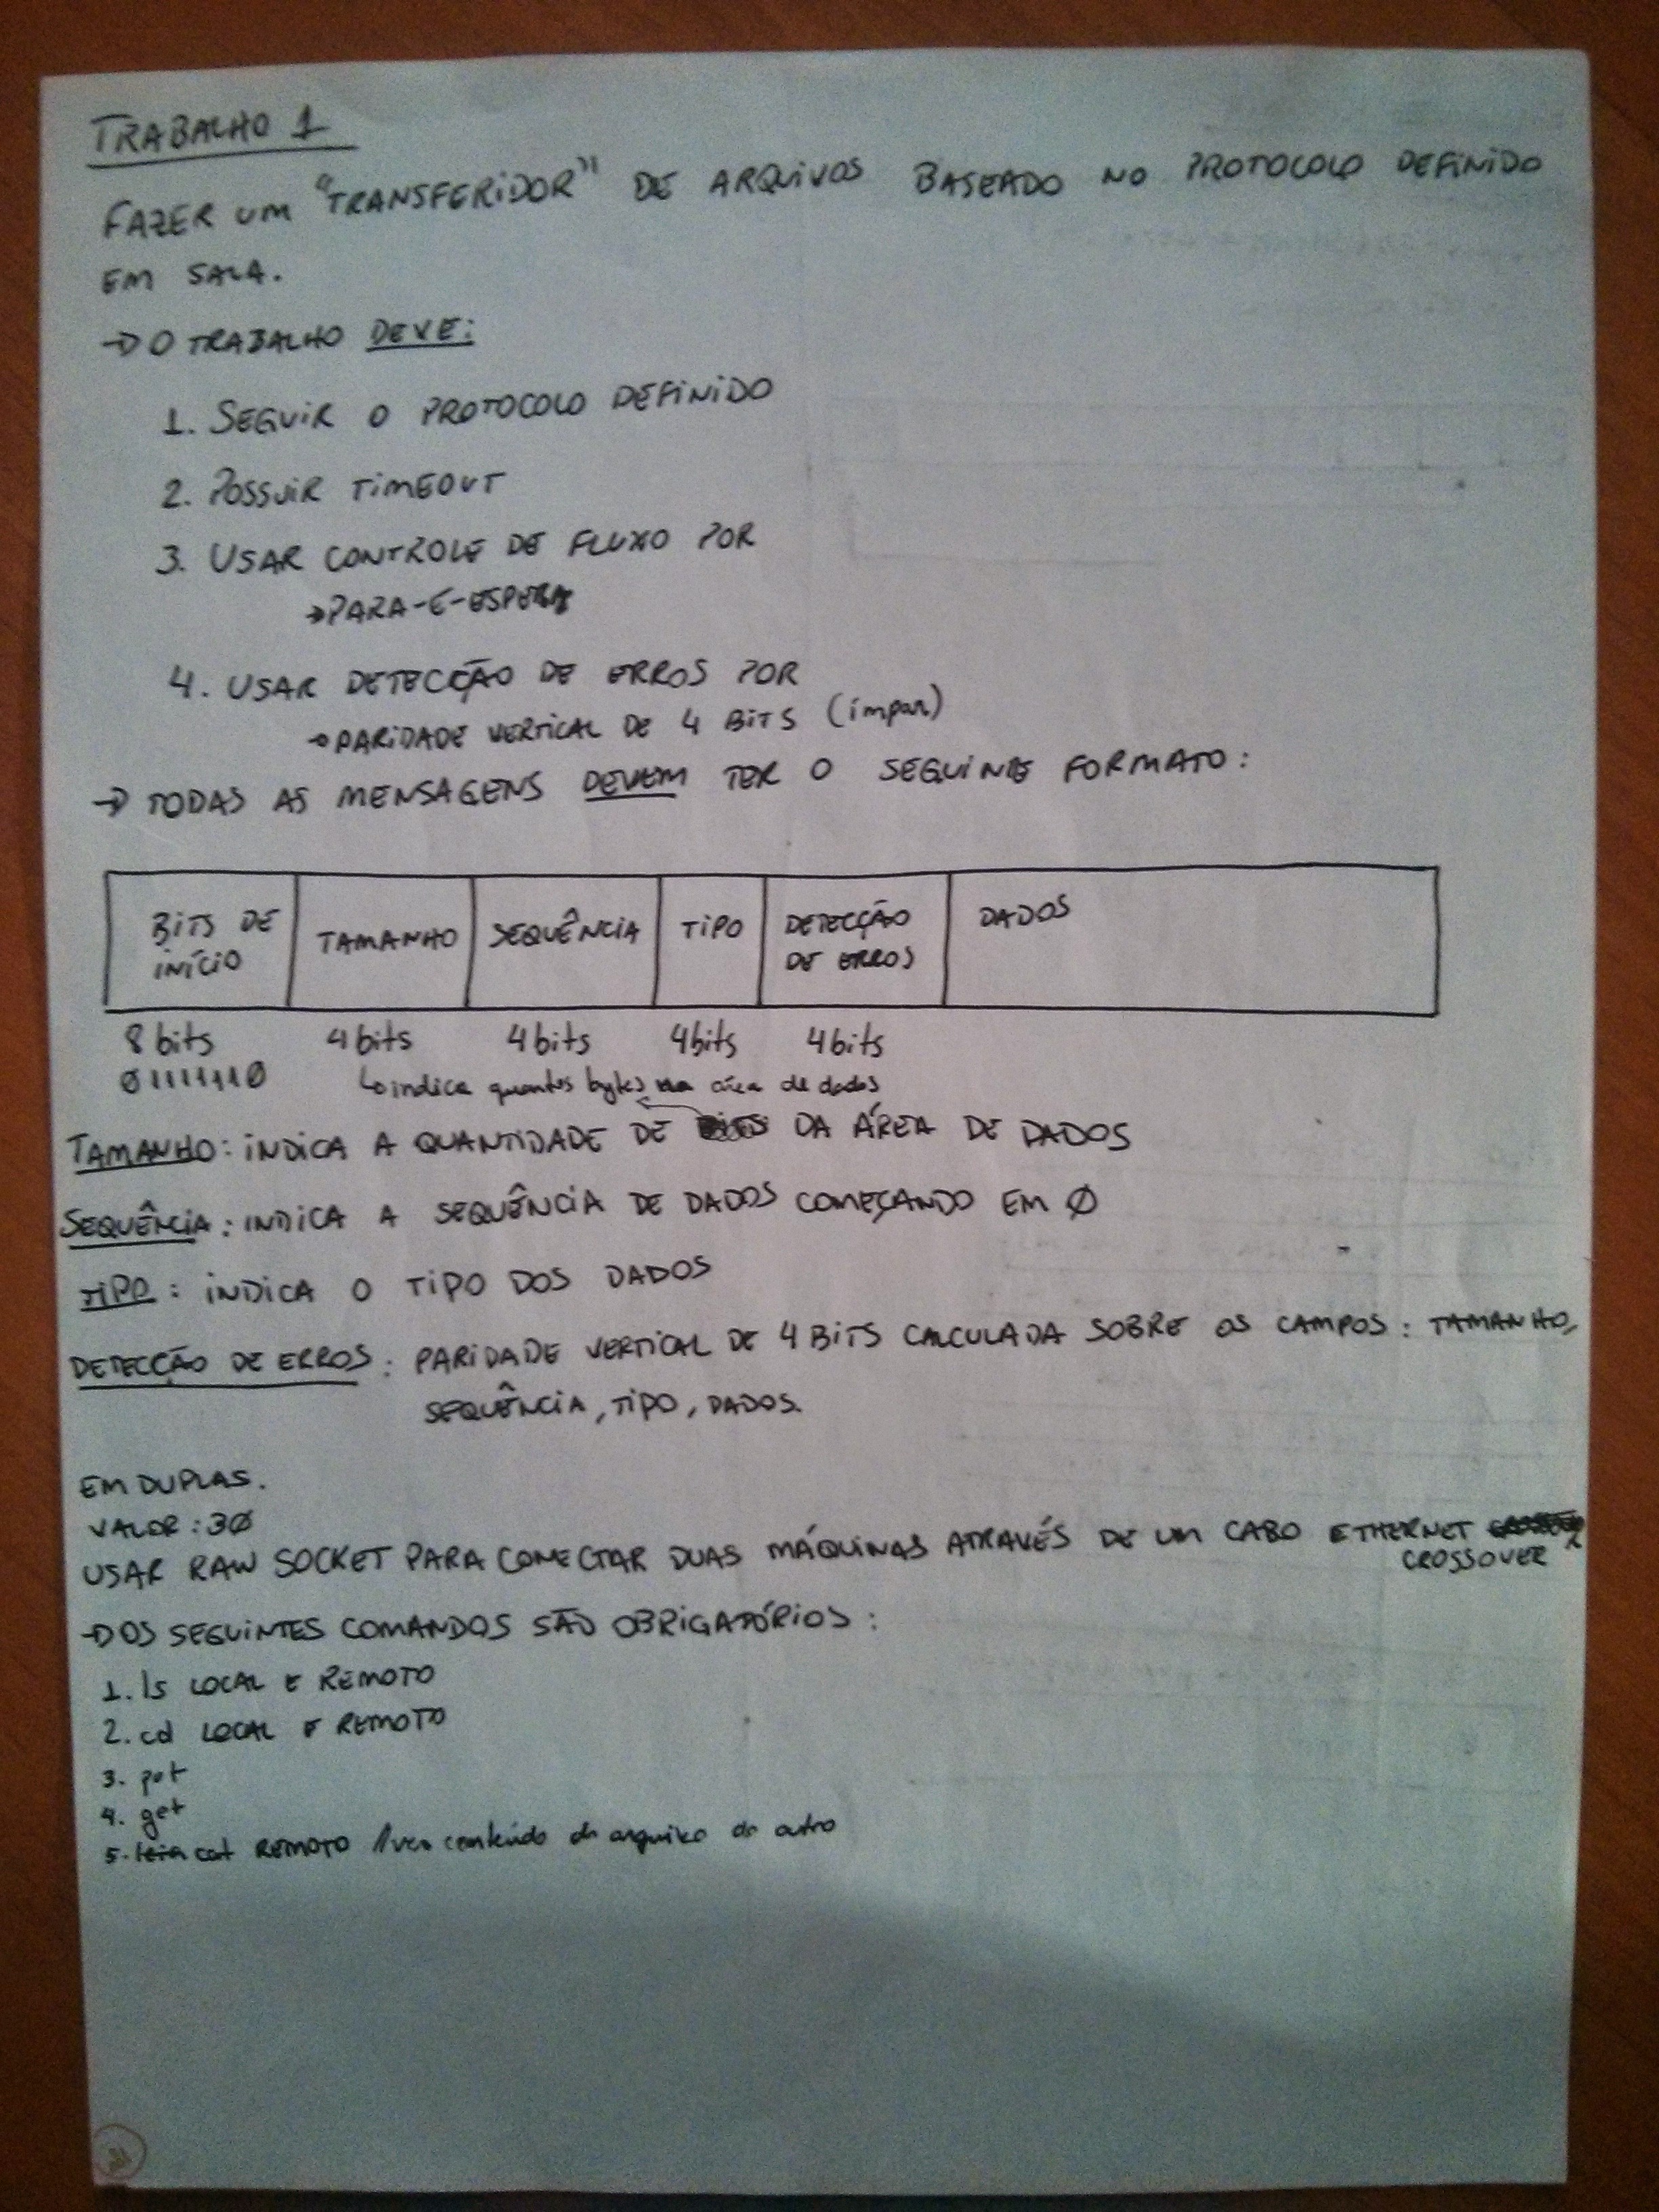 TRABALHO 1
FAZER UM "TRANSFERIDOR" DE ARQUIVOS BASEADO NO PROTOCOLO DEFINIDO
EM SALA.
→ O TRABALHO DEVE:
1. SEGUIR O PROTOCOLO DEFINIDO
2. POSSUIR TIMEOUT
3. USAR CONTROLE DE FLUXO POR
→ PARA-E-ESPERA
4. USAR DETECÇÃO DE ERROS POR
→ PARIDADE VERTICAL DE 4 BITS (ímpar)
→ TODAS AS MENSAGENS DEVEM TER O SEGUINTE FORMATO:
BITS DE INÍCIO TAMANHO SEQUÊNCIA TIPO DETECÇÃO DE ERROS DADOS
8 bits 4 bits 4 bits 4 bits 4 bits
01111110 ↳ indica quantos bytes na área de dados
TAMANHO: INDICA A QUANTIDADE DE DA ÁREA DE DADOS
SEQUÊNCIA: INDICA A SEQUÊNCIA DE DADOS COMEÇANDO EM 0
TIPO: INDICA O TIPO DOS DADOS
DETECÇÃO DE ERROS: PARIDADE VERTICAL DE 4 BITS CALCULADA SOBRE OS CAMPOS: TAMANHO,
SEQUÊNCIA, TIPO, DADOS.
EM DUPLAS.
VALOR: 30
USAR RAW SOCKET PARA CONECTAR DUAS MÁQUINAS ATRAVÉS DE UM CABO ETHERNET
CROSSOVER
→ OS SEGUINTES COMANDOS SÃO OBRIGATÓRIOS:
1. ls LOCAL E REMOTO
2. cd LOCAL E REMOTO
3. put
4. get
5. cat REMOTO //ver conteúdo do arquivo do outro